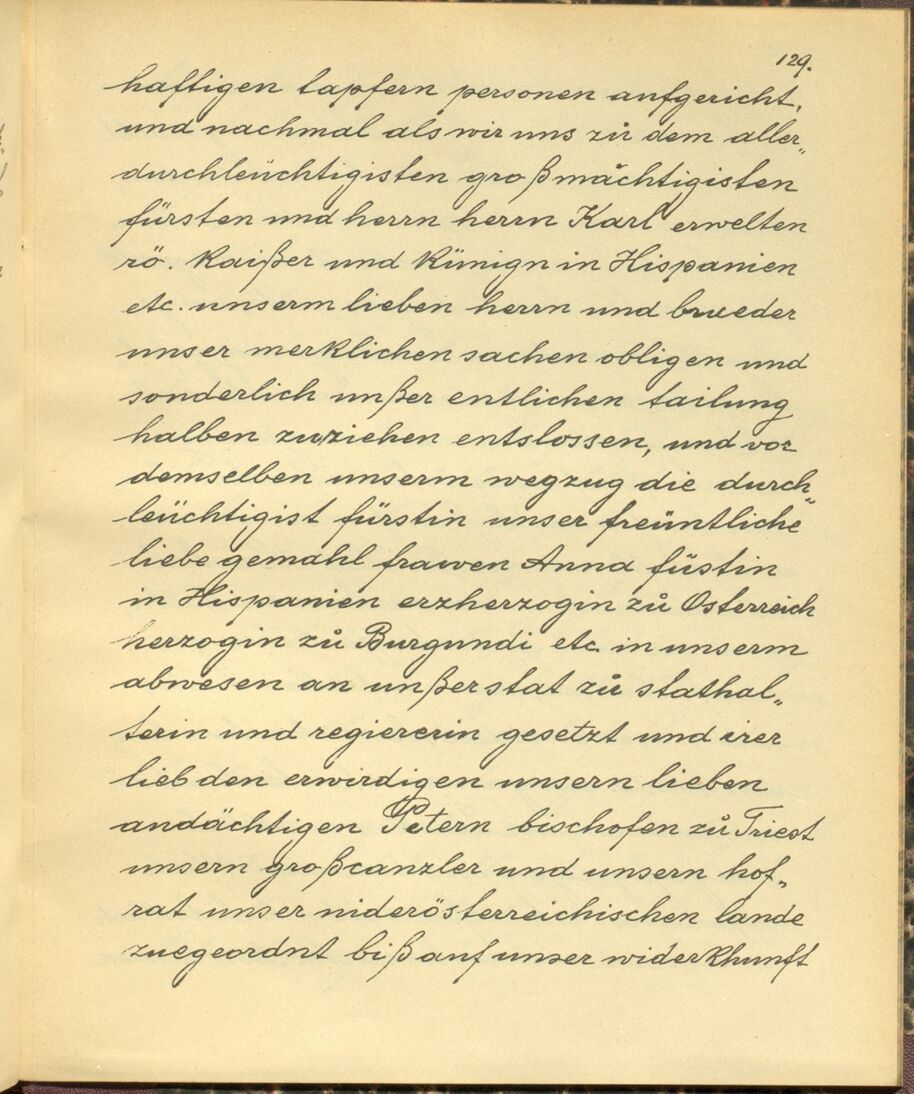 129.
haftigen tapfern personen aufgericht,
und nachmal als wir uns zů dem aller„
durchleüchtigisten großmåchtigisten
fürsten und herrn herrn Karl erwelten
rö. Kaißer und Künign in Hispanien
etc. unserm lieben herrn und brueder
unser merklichen sachen obligen und
sonderlich unßer entlichen tailung
halben zuziehen entslossen, und vor
demselben unserm wegzug die durch„
leüchtigist fürstin unser freüntliche
liebe gemahl frawen Anna füstin
in Hispanien erzherzogin zů Osterreich
herzogin zů Burgundi etc. in unserm
abwesen an unßer stat zů stathal„
terin und regiererin gesetzt und irer
lieb den erwirdigen unsern lieben
andächtigen Petern bischofen zů Triest
unsern großcanzler und unsern hof„
rat unser niderösterreichischen lande
zuegeordnt biß auf unser widerkhunft